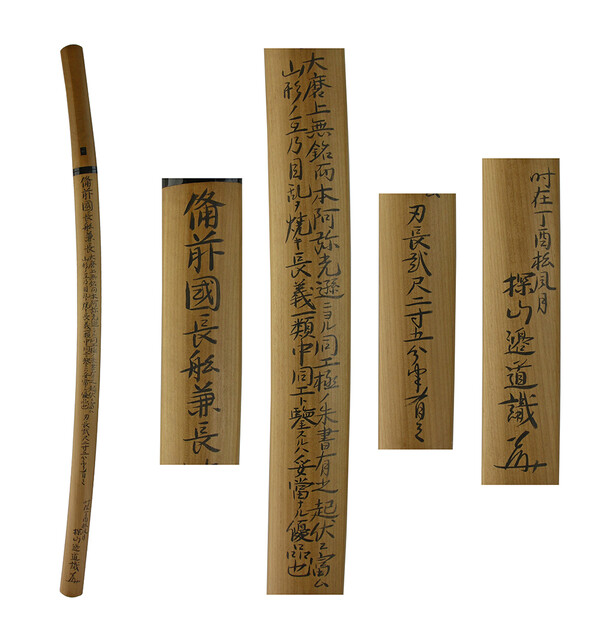 備前國長舩兼長
大磨上無銘而本阿弥光遜ニヨル同工極ノ朱書有之起伏ニ富ム
山形ノ互乃目乱ヲ焼キ長義一類中同工ト鑒スルハ妥當ナル優品也
刃長貳尺二寸五分半有之
时在丁酉松風月
探山邉道識